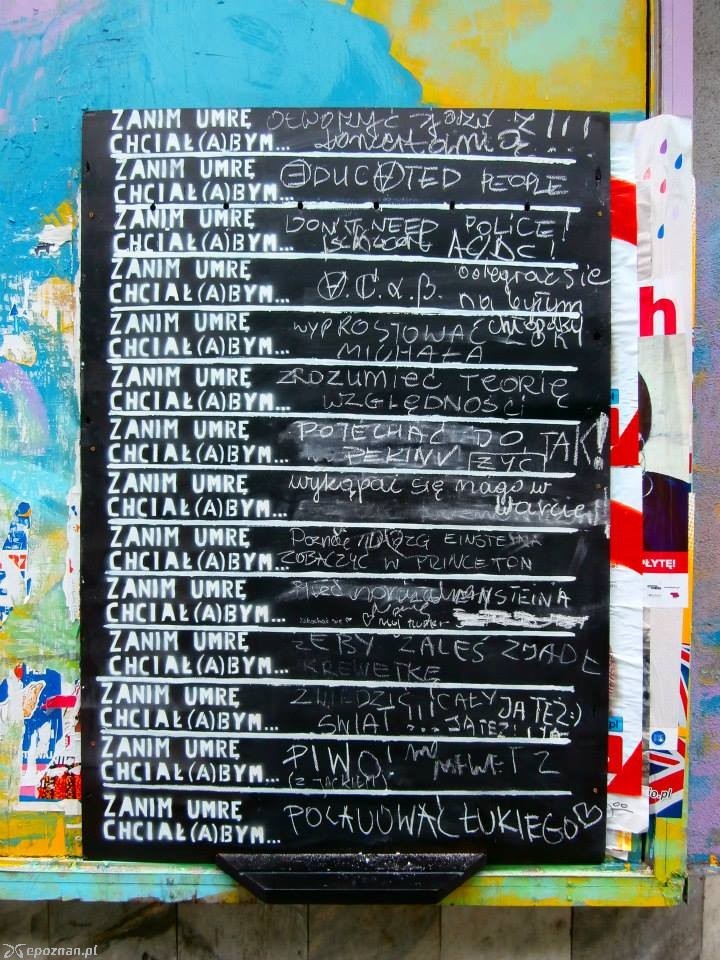 ZANIM UMRĘ OTWORZYĆ Z !!!
CHCIAŁ(A)BYM...
ZANIM UMRĘ EDUCATED PEOPLE
CHCIAŁ(A)BYM...
ZANIM UMRĘ DON'T NEED POLICE!
CHCIAŁ(A)BYM... ACDC!
ZANIM UMRĘ odegrać się
CHCIAŁ(A)BYM... A.C.α.β. na byłym
chłopaku
ZANIM UMRĘ WYPROSTOWAĆ
CHCIAŁ(A)BYM... MICHAŁA
ZANIM UMRĘ ZROZUMIEĆ TEORIĘ
CHCIAŁ(A)BYM... WZGLĘDNOŚCI
ZANIM UMRĘ POJECHAĆ DO TAK!
CHCIAŁ(A)BYM... PEKINU ŻYĆ
ZANIM UMRĘ wykąpać się nago w
CHCIAŁ(A)BYM... warcie
ZANIM UMRĘ MÓZG EINSTEINA
CHCIAŁ(A)BYM... ZOBACZYĆ W PRINCETON
ZANIM UMRĘ Mieć
CHCIAŁ(A)BYM...
ZANIM UMRĘ ŻEBY ZJADŁ
CHCIAŁ(A)BYM... KREWETKĘ
ZANIM UMRĘ ZWIEDZIĆ CAŁY JA TEŻ:)
CHCIAŁ(A)BYM... ŚWIAT !!! JA TEŻ!
ZANIM UMRĘ PIWO!
CHCIAŁ(A)BYM... (Z JACKIEM)
ZANIM UMRĘ
CHCIAŁ(A)BYM... ŁUKIEGO
h
ŁYTĘ!
epoznan.pl